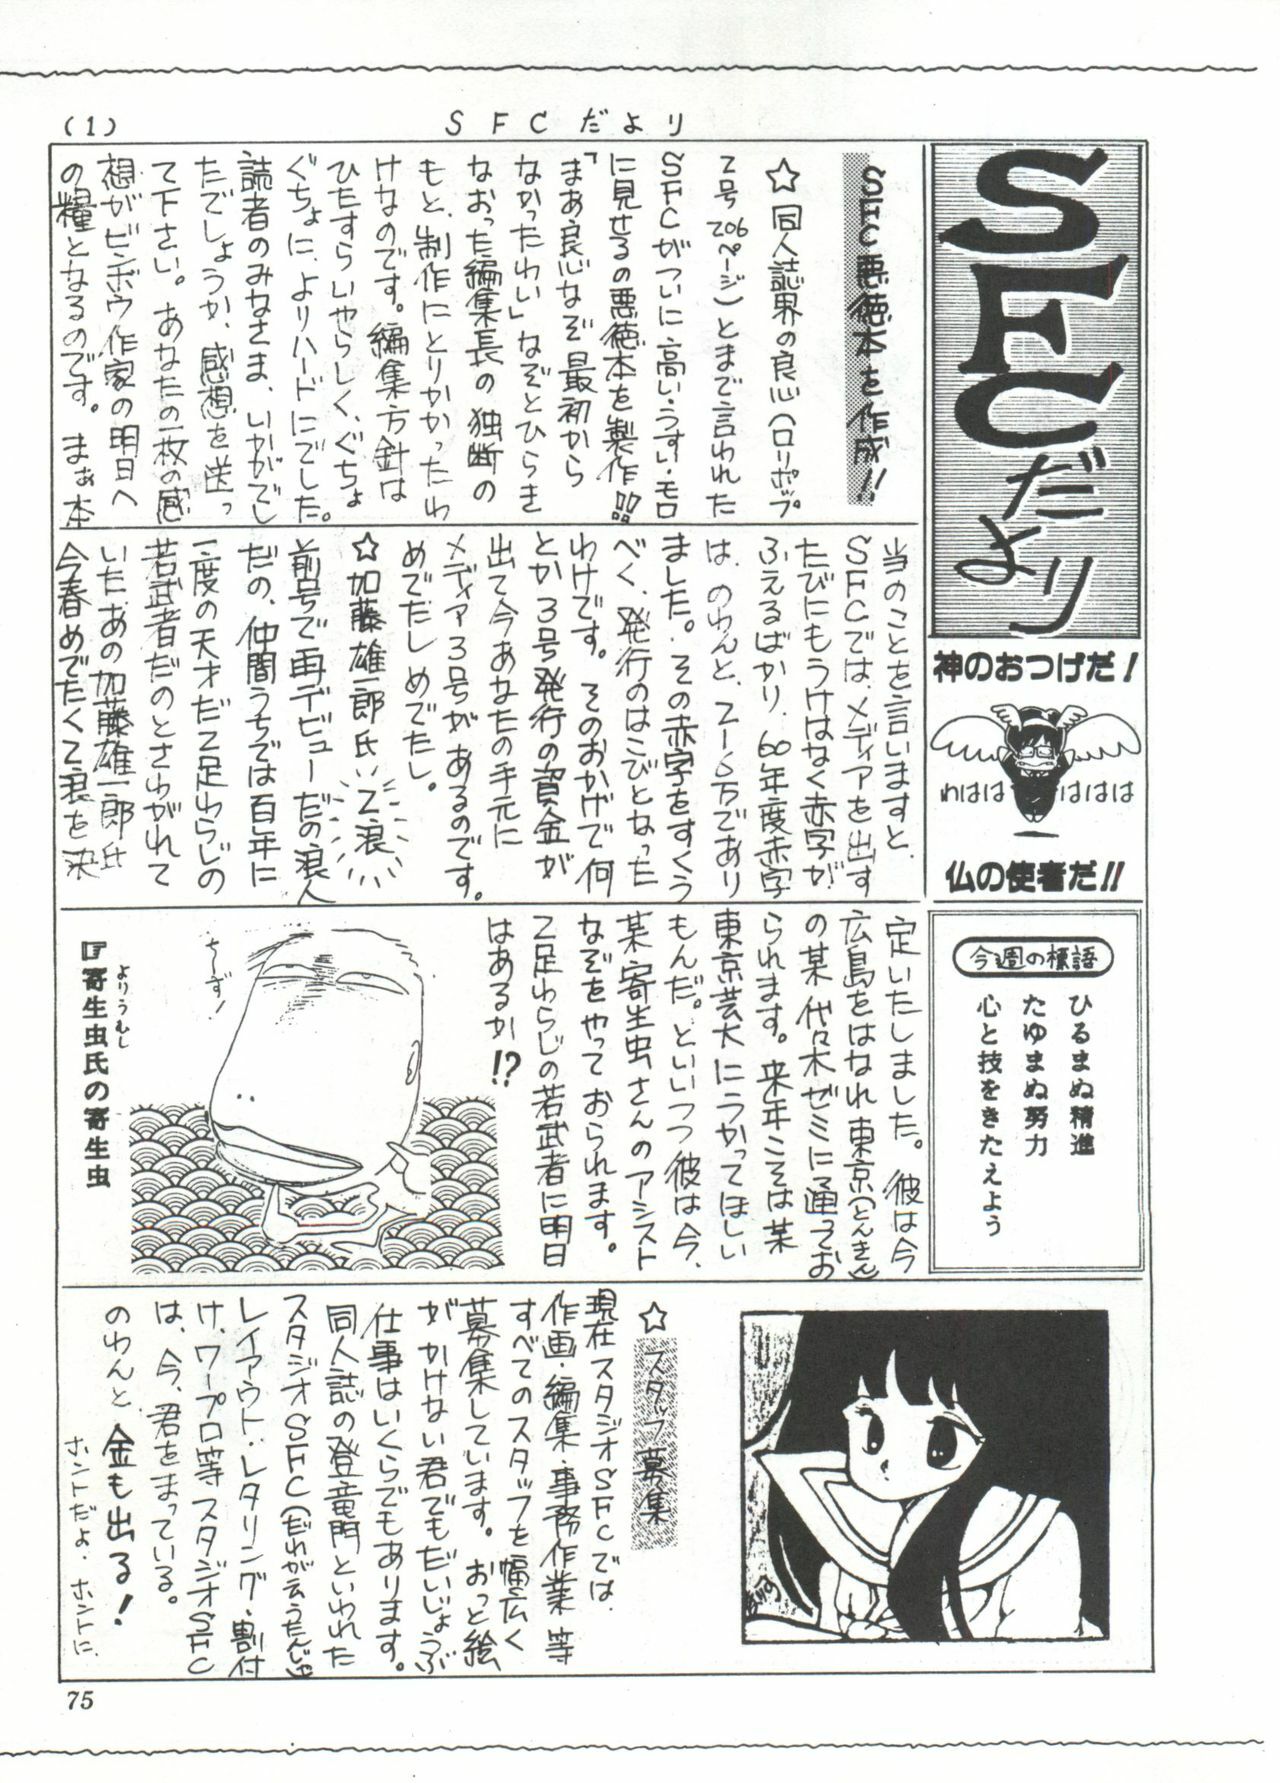 (1)
SFCだより
SFCだより
神のおつげだ!
わははは
ははは
仏の使者だ!!
今週の標語
ひるまぬ精進
たゆまぬ努力
心と技をきたえよう
SFC悪徳本を作成!!
☆同人誌界の良心(ロリポップ
2号206ページ)とまで言われた
SFCがついに高い・うすい・モロ
に見せるの悪徳本を製作!!
「まあ良心なぞ最初から
なかったわい」なぞとひらき
なおった編集長の独断の
もと、制作にとりかかったわ
けなのです。編集方針は
ひたすらいやらしく、ぐちょ
ぐちょに、よりハードにでした。
読者のみなさま、いかがでし
たでしょうか、感想を送っ
て下さい。あなたの一枚の感
想がビンボウ作家の明日へ
の糧となるのです。まぁ本
当のことを言いますと、
SFCでは、メディアを出す
たびにもうけはなく赤字が
ふえるばかり、60年度赤字
は、のわんと、2～6万であり
ました。その赤字をすくう
べく、発行のはこびとなった
わけです。そのおかげで何
とか3号発行の資金が
出て今あなたの手元に
メディア3号があるのです。
めでたしめでたし。
☆加藤雄一郎氏 乙浪
前号で再デビューだの浪人
だの、仲間うちでは百年に
一度の天才だ2足わらじの
若武者だのとさわがれて
いた、あの加藤雄一郎氏
今春めでたく乙浪を決
定いたしました。彼は今
広島をはなれ東京(とんきん)
の某代々木ゼミに通ってお
られます。来年こそは某
東京芸大にうかってほしい
もんだ。といいつつ彼は今、
某・寄生虫さんのアシスト
なぞをやっておられます。
2足わらじの若武者に明日
はあるか!?
ち～ず!
☞寄生虫氏の寄生虫
よりうむし
☆スタッフ募集
現在スタジオSFCでは、
作画・編集・事務作業等
すべてのスタッフを幅広く
募集しています。おっと絵
がかけない君でもだいじょうぶ
仕事はいくらでもあります。
同人誌の登竜門といわれた
スタジオSFC(だれが云うたんじゃ)
レイアウト・レタリング・割付
け、ワープロ等スタジオSFC
は、今、君をまっている。
のわんと金も出る!
ホントだよ・ホントに、
75